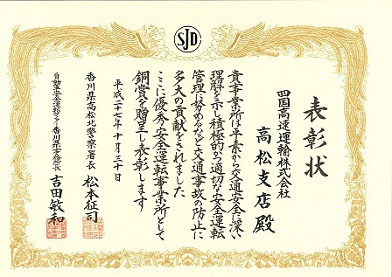 SJD
表彰状
四国高速運輸株式会社
高松支店殿
貴事業所は平素から交通安全に深い
理解を示し積極的かつ適切な安全運転
管理に努めるなど交通事故の防止に
多大の貢献をされました
ここに優秀安全運転事業所として
銅賞を贈呈し表彰します
平成二十七年十月三十日
香川県高松北警察署長 松本征司
自動車安全運転センター香川県事務所長 吉田敏和